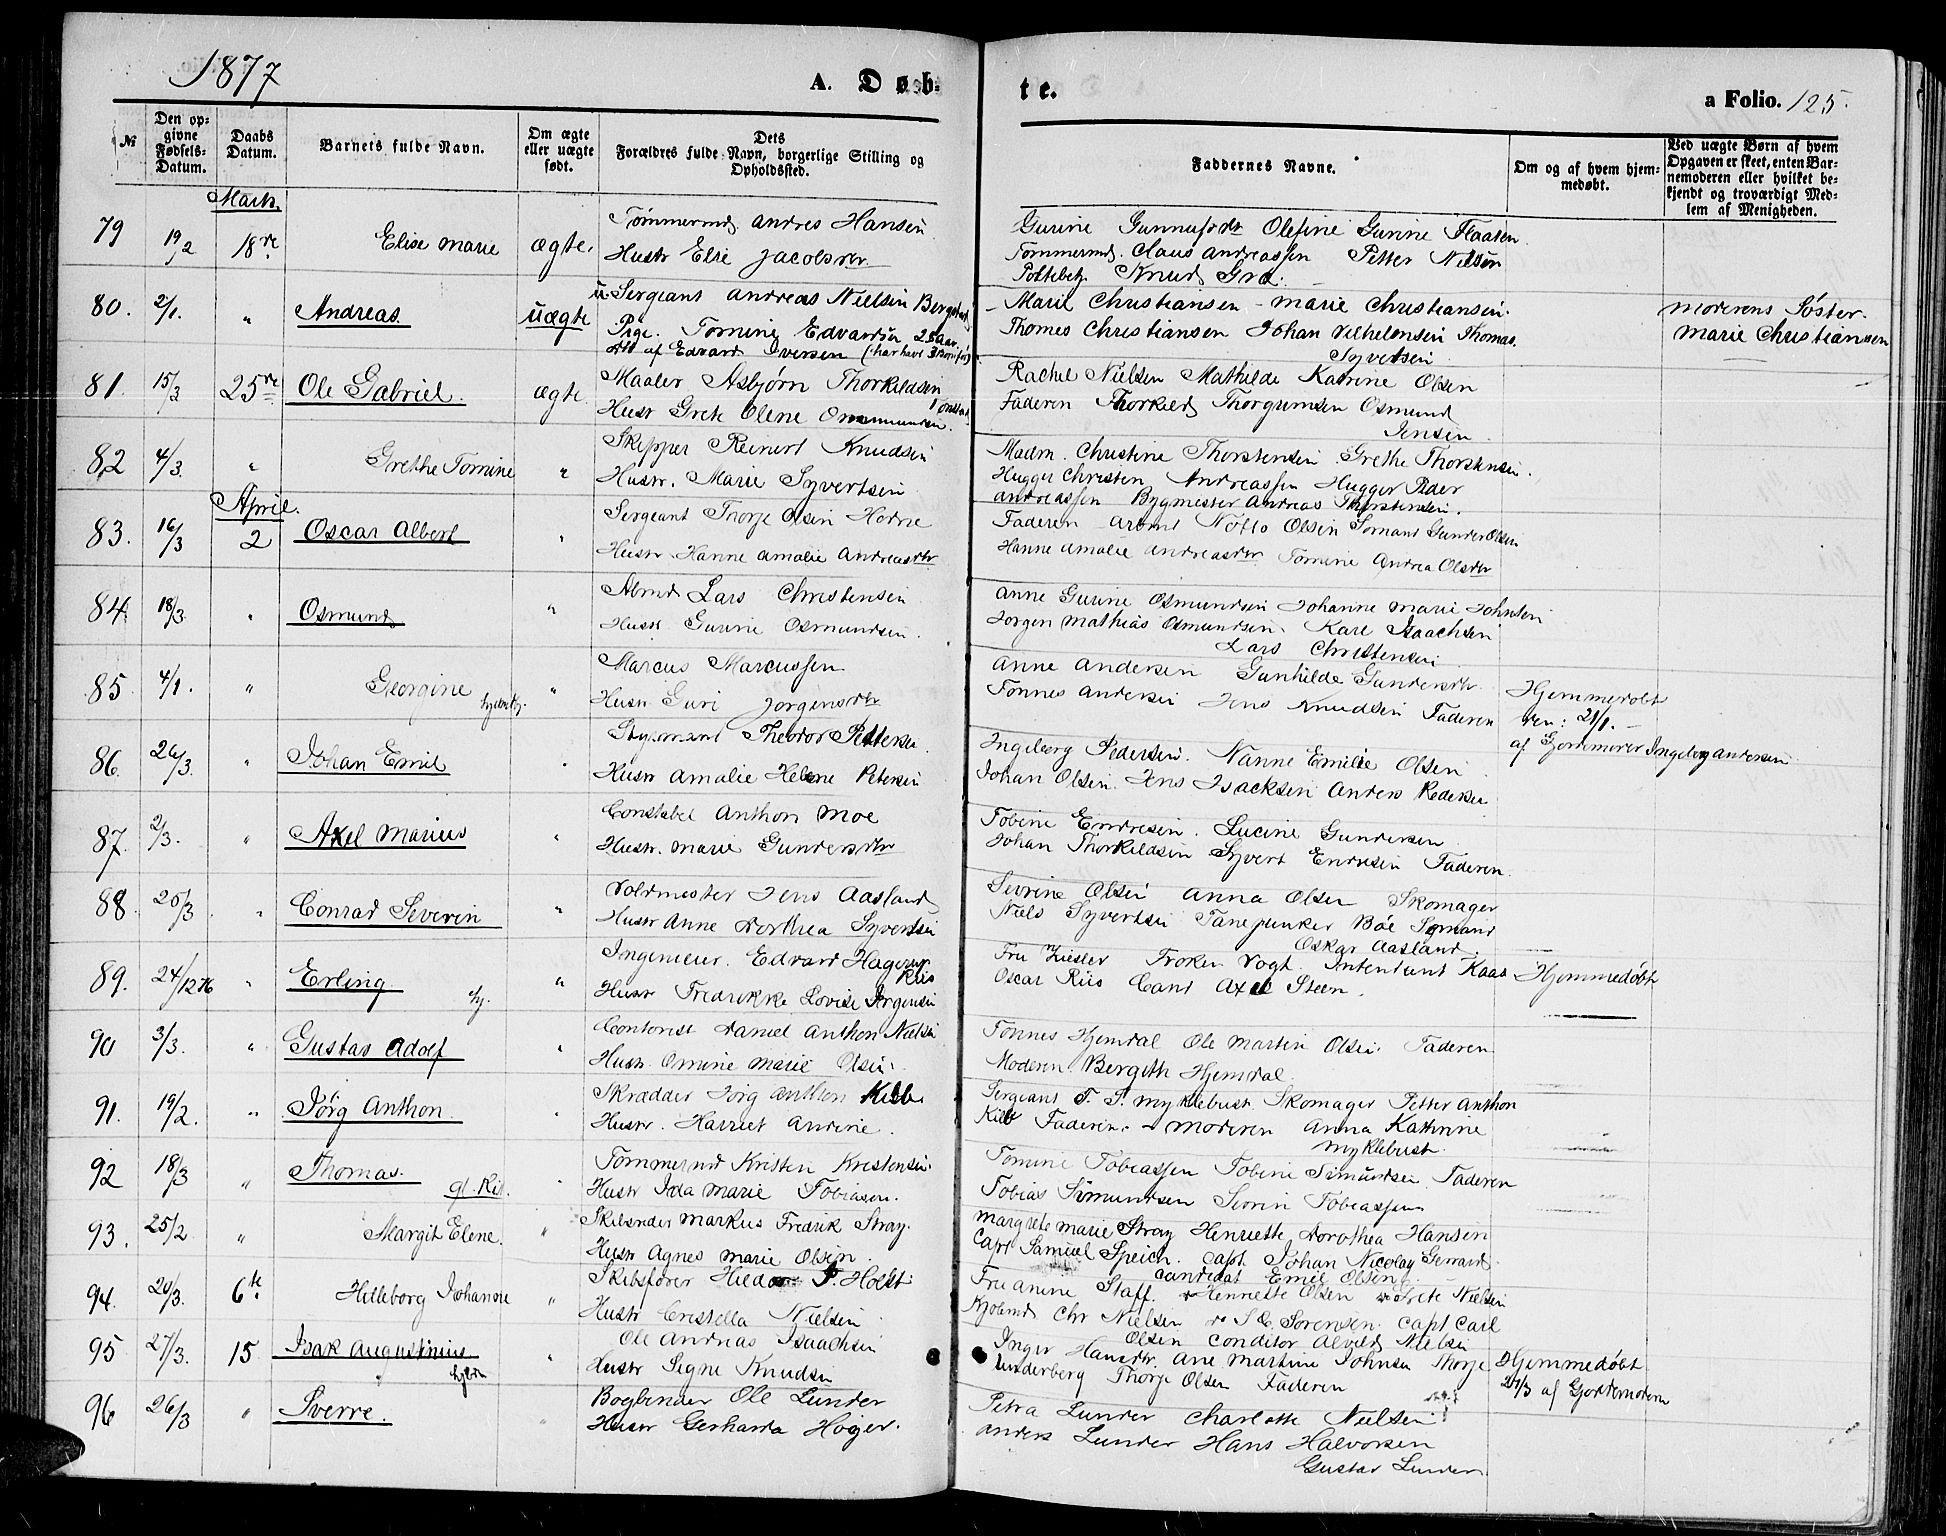 1877
A. Døb-
te.
a Folio. 125.
№
Den op-
givne
Fødsels-
Datum.
Daabs
Datum.
Barnets fulde Navn.
Om ægte
eller uægte
født.
Dets
Forældres fulde Navn, borgerlige Stilling og
Opholdssted.
Faddernes Navne.
Om og af hvem hjem-
medøbt.
Ved uægte Børn af hvem
Opgaven er skeet, enten Bar-
nemoderen eller hvilket be-
kjendt og troværdigt Med-
lem af Menigheden.
Marts.
79 19/2 18de Elise Marie ægte. Tømmermd. Andres Hansen
Hustr Elie Jacobsdtr
Gurine Gunnufsdtr Olefine Gurine Flaaten
Tømmermd. Claus Andreassen Petter Nielsen
Politibetj. Knud Gra.
80. 2/1. " Andreas. uægte u. Sergeant Andreas Nielsen Bergstad
Pige. Tomine Edvardsen 25 Aar
Dtr af Edvard Iversen (har havt 3 Børn før)
Marie Christiansen - Marie Christiansen.
Thomes Christiansen Johan Vilhelmsen Thomas
Syvertsen
Moderens Søster.
Marie Christiansen
81. 15/3 25de Ole Gabriel. ægte Maaler Asbjørn Thorkildsen
Tonstad
Hustr Grete Olene Ommundsen.
Rachel Nielsen Mathilde Katrine Olsen
Faderen Thorkild Thorgumsen Osmund
Jensen
82 4/3. " Grethe Tomine " Skipper Reinert Knudsen
Hustr. Marie Syvertsen
Madm. Christine Thorstensen. Grethe Thorstensen.
Hugger Christen Andreassen Hugger Peder
Andreassen Bygmester Andreas Thorstensen.
April.
83. 16/3 2 Oscar Albert " Sergeant Thorje Olsen Horne
Hustr Hanne Amalie Andreasdtr
Faderen Nötto Olsen Sømand Gunder Olsen
Hanne Amalie Andreasdtr Tomine Andrea Olsdtr
84. 18/3. " Osmund " Abmd Lars Christensen
Hustr Gurine Osmundsen.
Anne Gurine Osmundsen Johanne Marie Johnsen
Jorgen Mathias Osmundsen. Kare Isaachsen
Lars Christensen
85 4/1. " Georgine " Marcus Marcussen
Hustr Guri Jorgensdtr
Anne Andersen Gunhilde Gundersdtr.
Tonnes Andersen Jens Knudsen Faderen
Hjemmedøbt
den: 21/1. -
af Gjordemoder Ingeborg Andersen
86. 26/3. " Johan Emil " Styrmand Theodor Pettersen.
Hustr Amalie Helene Petersen
Ingeborg Pedersen. Nanne Emilie Olsen
Johan Olsen. Jens Isacksen Anders Pedersen
87. 2/3. " Axel Marius " Constabel Anthon Moe
Hustr. Marie Gundersdtr
Tobine Endresen. Lucine Gundersen
Johan Thorkildsen Syvert Endresen Faderen
88 25/3. " Conrad Severin " Voldmester Jens Aasland
Hustr Anne Dorthea Syvertsen
Sevrine Olsen Anna Olsen Skomager
Niels Syvertsen Fanejunker Bøe Sømand
Oskar Aasland
89. 24/12 76 " Erling. hj. " Ingenieur. Edvard Hagerup
Riis
Hustr Fredrikke Lovise Jrgensen
Fru Zieslev Frøken Vogt. Intendant Kaas
Oscar Riis Cand Axel Steen.
Hjemmedøbt
90 3/3. " Gustav Adolf " Contorist Daniel Anthon Nielsen
Hustr. Omine Marie Olsen.
Tonnes Hjemdal Ole Martin Olsen. Faderen
Moderen Bergith Hjemdal.
91. 19/2. " Jörg Anthon. " Skrædder Jörg Anthon Kilb
Hustr. Harriet Andrine.
Sergeant T. S. Myklebust. Skomager Petter Anthon
Kilb Faderen. - Moderen Anna Kathrine
Myklebust.
92 18/3 " Thomas. gl. Ril. " Tømmermd Kristen Kristensen.
Hustr Ida Marie Tobiasen.
Tomine Tobiassen Tobine Simundsen Faderen
Tobias Simundsen Sevrin Tobiassen
93. 25/2 " Margit Elene. " Skibsreder Markus Fredrik Stray.
Hustr Agnes Marie Olsen.
Margrete Marie Stray Henriette Dorothea Hansen
Capt Samuel Speich. Capt. Johan Nicolay Gerrard.
Candidat Emil Olsen
94. 20/3. 6te Hilleborg Johanne " Skibsfører P. Holst
Hustr Cristella Nielsen
Fru Anine Staff. Do Henriette Olsen Do Grete Nielsen
Kjøbmd Chr Nielsen Do S C. Sorensen. Capt Carl
Olsen Conditor Alvild Nielsen
95 27/3. 15 Isak Augustinius hjem " Ole Andreas Isaachsen
Hustr Signe Knudsen
Inger Hansdtr. Ane Martine Johnsen Thorje
Underberg Thorje Olsen Faderen
Hjemmedøbt
27/3 af Gjordemoderen
96 26/3 " Sverre. " Bogbinder Ole Lunder
Hustr Gerharda Høyer.
Petra Lunder Charlotte Nielsen
Anders Lunder Hans Halvorsen
Gustav Lunder